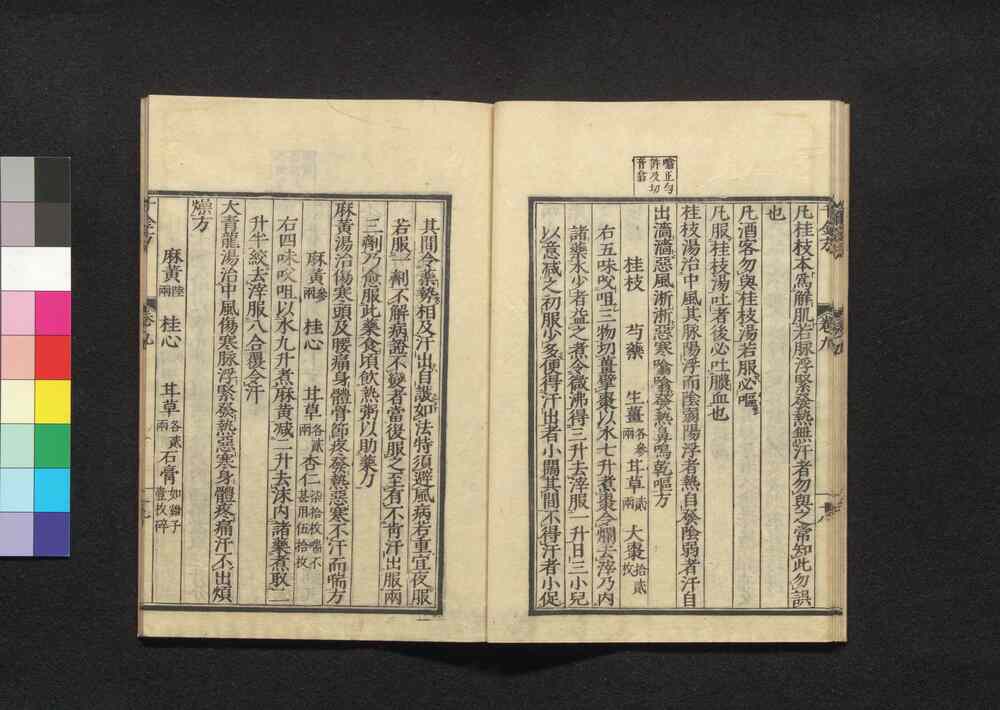 凡桂枝本為解肌若脉浮緊發熱無汗者勿與之常知此勿誤
也
凡酒客勿與桂枝湯若服必嘔
凡服桂枝湯吐者後必吐膿血也
桂枝湯治中風其脉陽浮而陰弱陽浮者熱自發陰弱者汗自
出濇濇惡風淅淅惡寒噏噏發熱鼻鳴乾嘔方
桂枝 芍藥 生薑各叁兩 甘草貳兩 大棗拾貳枚
右五味㕮咀三物切薑擘棗以水七升煮棗令爛去滓乃内
諸藥水少者益之煮令微沸得三升去滓服一升日三小兒
以意減之初服少多便得汗出者小闊其間不得汗者小促
其間令藥勢相及汗出自護如法特須避風病若重宜夜服
若服一劑不解病證不變者當復服之至有不肯汗出服兩
三劑乃愈服此藥食頃飲熱粥以助藥力
麻黃湯治傷寒頭及腰痛身體骨節疼發熱惡寒不汗而喘方
麻黃叁兩 桂心 甘草各貳兩 杏仁柒拾枚喘不甚用伍拾枚
右四味㕮咀以水九升煮麻黃減二升去沫内諸藥煮取二
升半絞去滓服八合覆令汗
大青龍湯治中風傷寒脉浮緊發熱惡寒身體疼痛汗不出煩
燥方
麻黃陸兩 桂心 甘草各貳兩 石膏如雞子壹枚碎